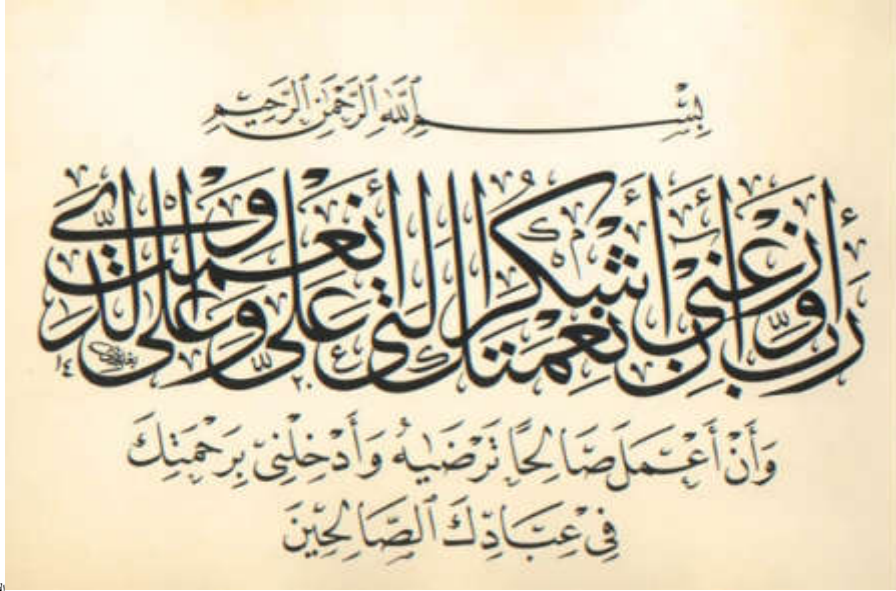 بِسْمِ ٱللَّهِ ٱلرَّحْمَٰنِ ٱلرَّحِيمِ
رَبِّ أَوْزِعْنِي أَنْ أَشْكُرَ نِعْمَتَكَ الَّتِي أَنْعَمْتَ عَلَيَّ وَعَلَى وَالِدَيَّ
وَأَنْ أَعْمَلَ صَالِحًا تَرْضَىٰهُ وَأَدْخِلْنِي بِرَحْمَتِكَ
فِي عِبَادِكَ ٱلصَّالِحِينَ
١٤٢٠